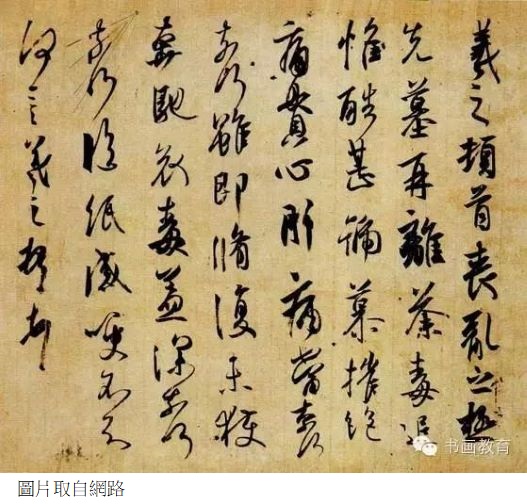 羲之頓首喪亂之極
先墓再離荼毒追
惟酷甚號慕摧絕
痛貫心肝痛當奈何
奈何雖即脩復未獲
奔馳哀毒益深奈何
奈何臨紙感哽不知
何言羲之頓首頓首
书画教育
圖片取自網路